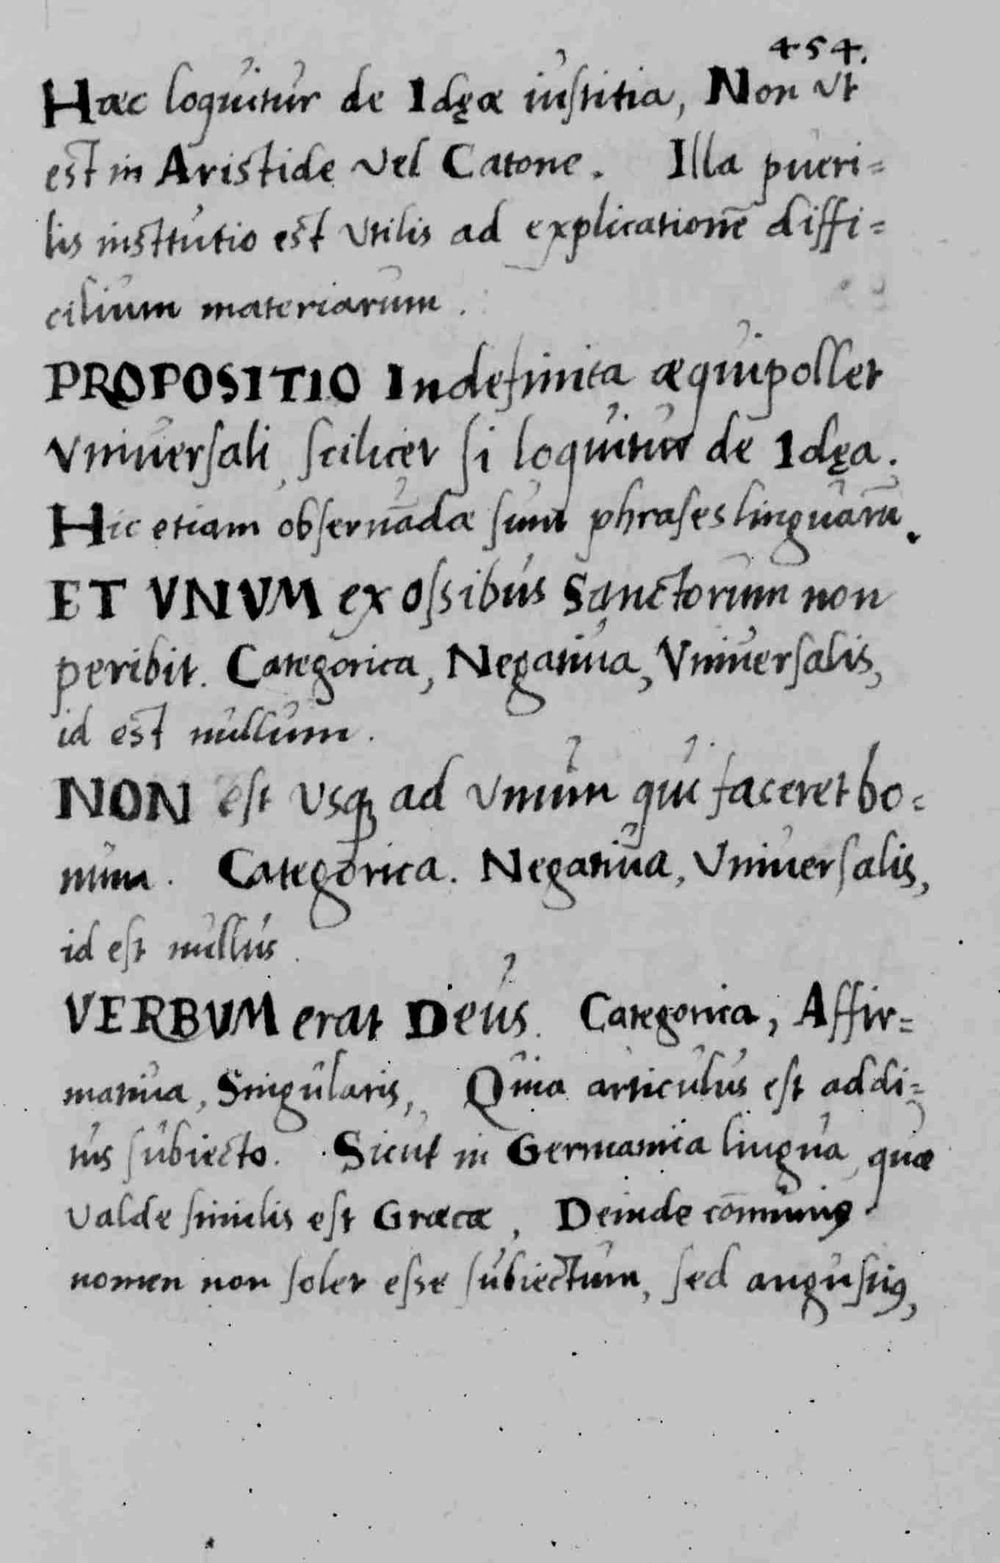 454.
Hæc loquitur de Idęæ iustitia, Non ut
est in Aristide vel Catone. Illa pueri=
lis insttutio est utilis ad explicationē diffi=
cilium materiarum.
PROPOSITIO Indefinita æquipollet
Vniuersali, scilicet si loquitur de Idęa.
Hic etiam obseruādæ sunt phrases linguarū.
ET VNVM ex ossibus Sanctorum non
peribit. Categorica, Negatiua, Vniuersalis,
id est nullum.
NON est usq; ad unum qui faceret bo=
num. Categorica. Negatiua, Vniuersalis,
id est nullus.
VERBVM erat Deus. Categorica, Affir=
matiua, Singularis, Quia articulus est addi=
tus subiecto. Sicut in Germanica lingua, quæ
valde similis est Græcæ, Deinde cōmuniꝰ
nomen non solet esse subiectum, sed angustiꝰ,